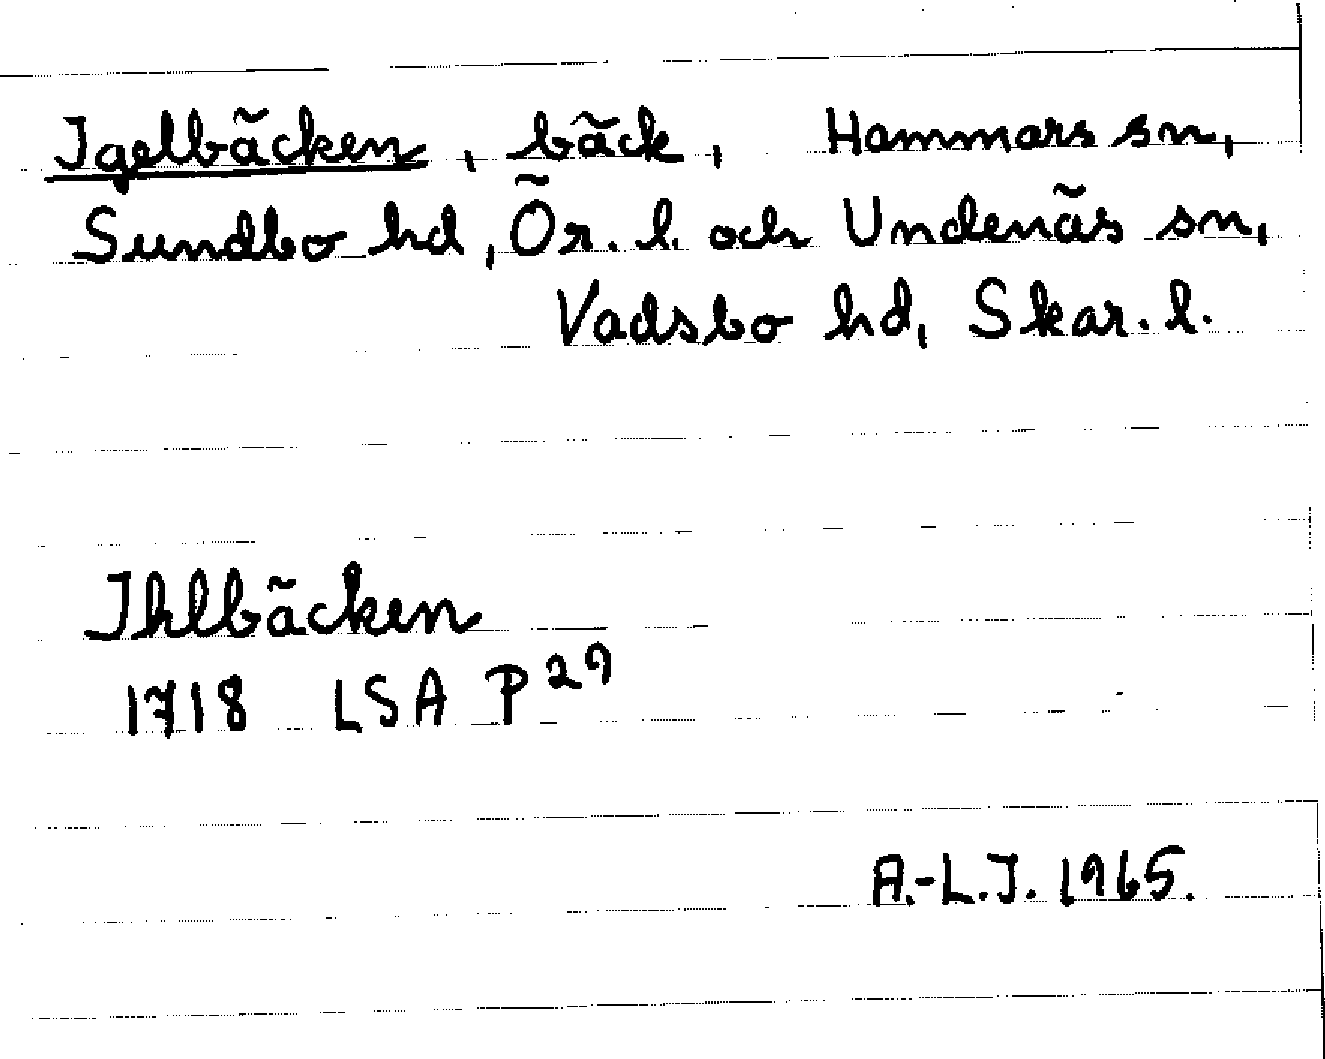 Igelbäcken, bäck, Hammars sn,
Sundbo hd, Ör. l. och Undenäs sn,
Vadsbo hd, Skar. l.
Ihlbäcken
1718 LSA P 29
A.-L.J. 1965.